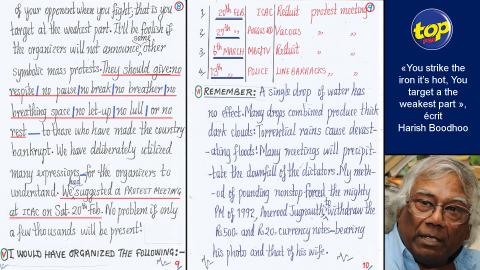 of your opponent when you fight; that is, you
target at the weakest part. It'll be foolish if
the organizers will not announce some other
symbolic mass protests. They should give no
respite / no pause / no break / no breather / no
breathing space / no let-up / no lull / or no
rest — to those who have made the country
bankrupt. We have deliberately utilized
many expressions for the organizers to
understand. We had suggested a PROTEST MEETING
at ICAC on Sat. 20th Feb. No problem if only
a few thousands will be present!
I WOULD HAVE ORGANIZED THE FOLLOWING:-
9
1 20th FEB ICAC Réduit protest meeting
2 27th " Vacoas "
3 6th MARCH MBC/TV Réduit "
4 POLICE LINE BARRACKS "
REMEMBER: A single drop of water has
no effect. Many drops combined produce thick
dark clouds. Torrential rains cause devast-
-ating floods! Many meetings will precipit-
-tate the downfall of the dictators. My meth-
-od of pounding nonstop forced the mighty
PM of 1992, Aneerood Jugnauth, to withdraw the
Rs 500. and Rs 20. currency notes—bearing
his photo and that of his wife.
10
top
FM
«You strike the
iron it's hot, You
target a the
weakest part »,
écrit
Harish Boodhoo